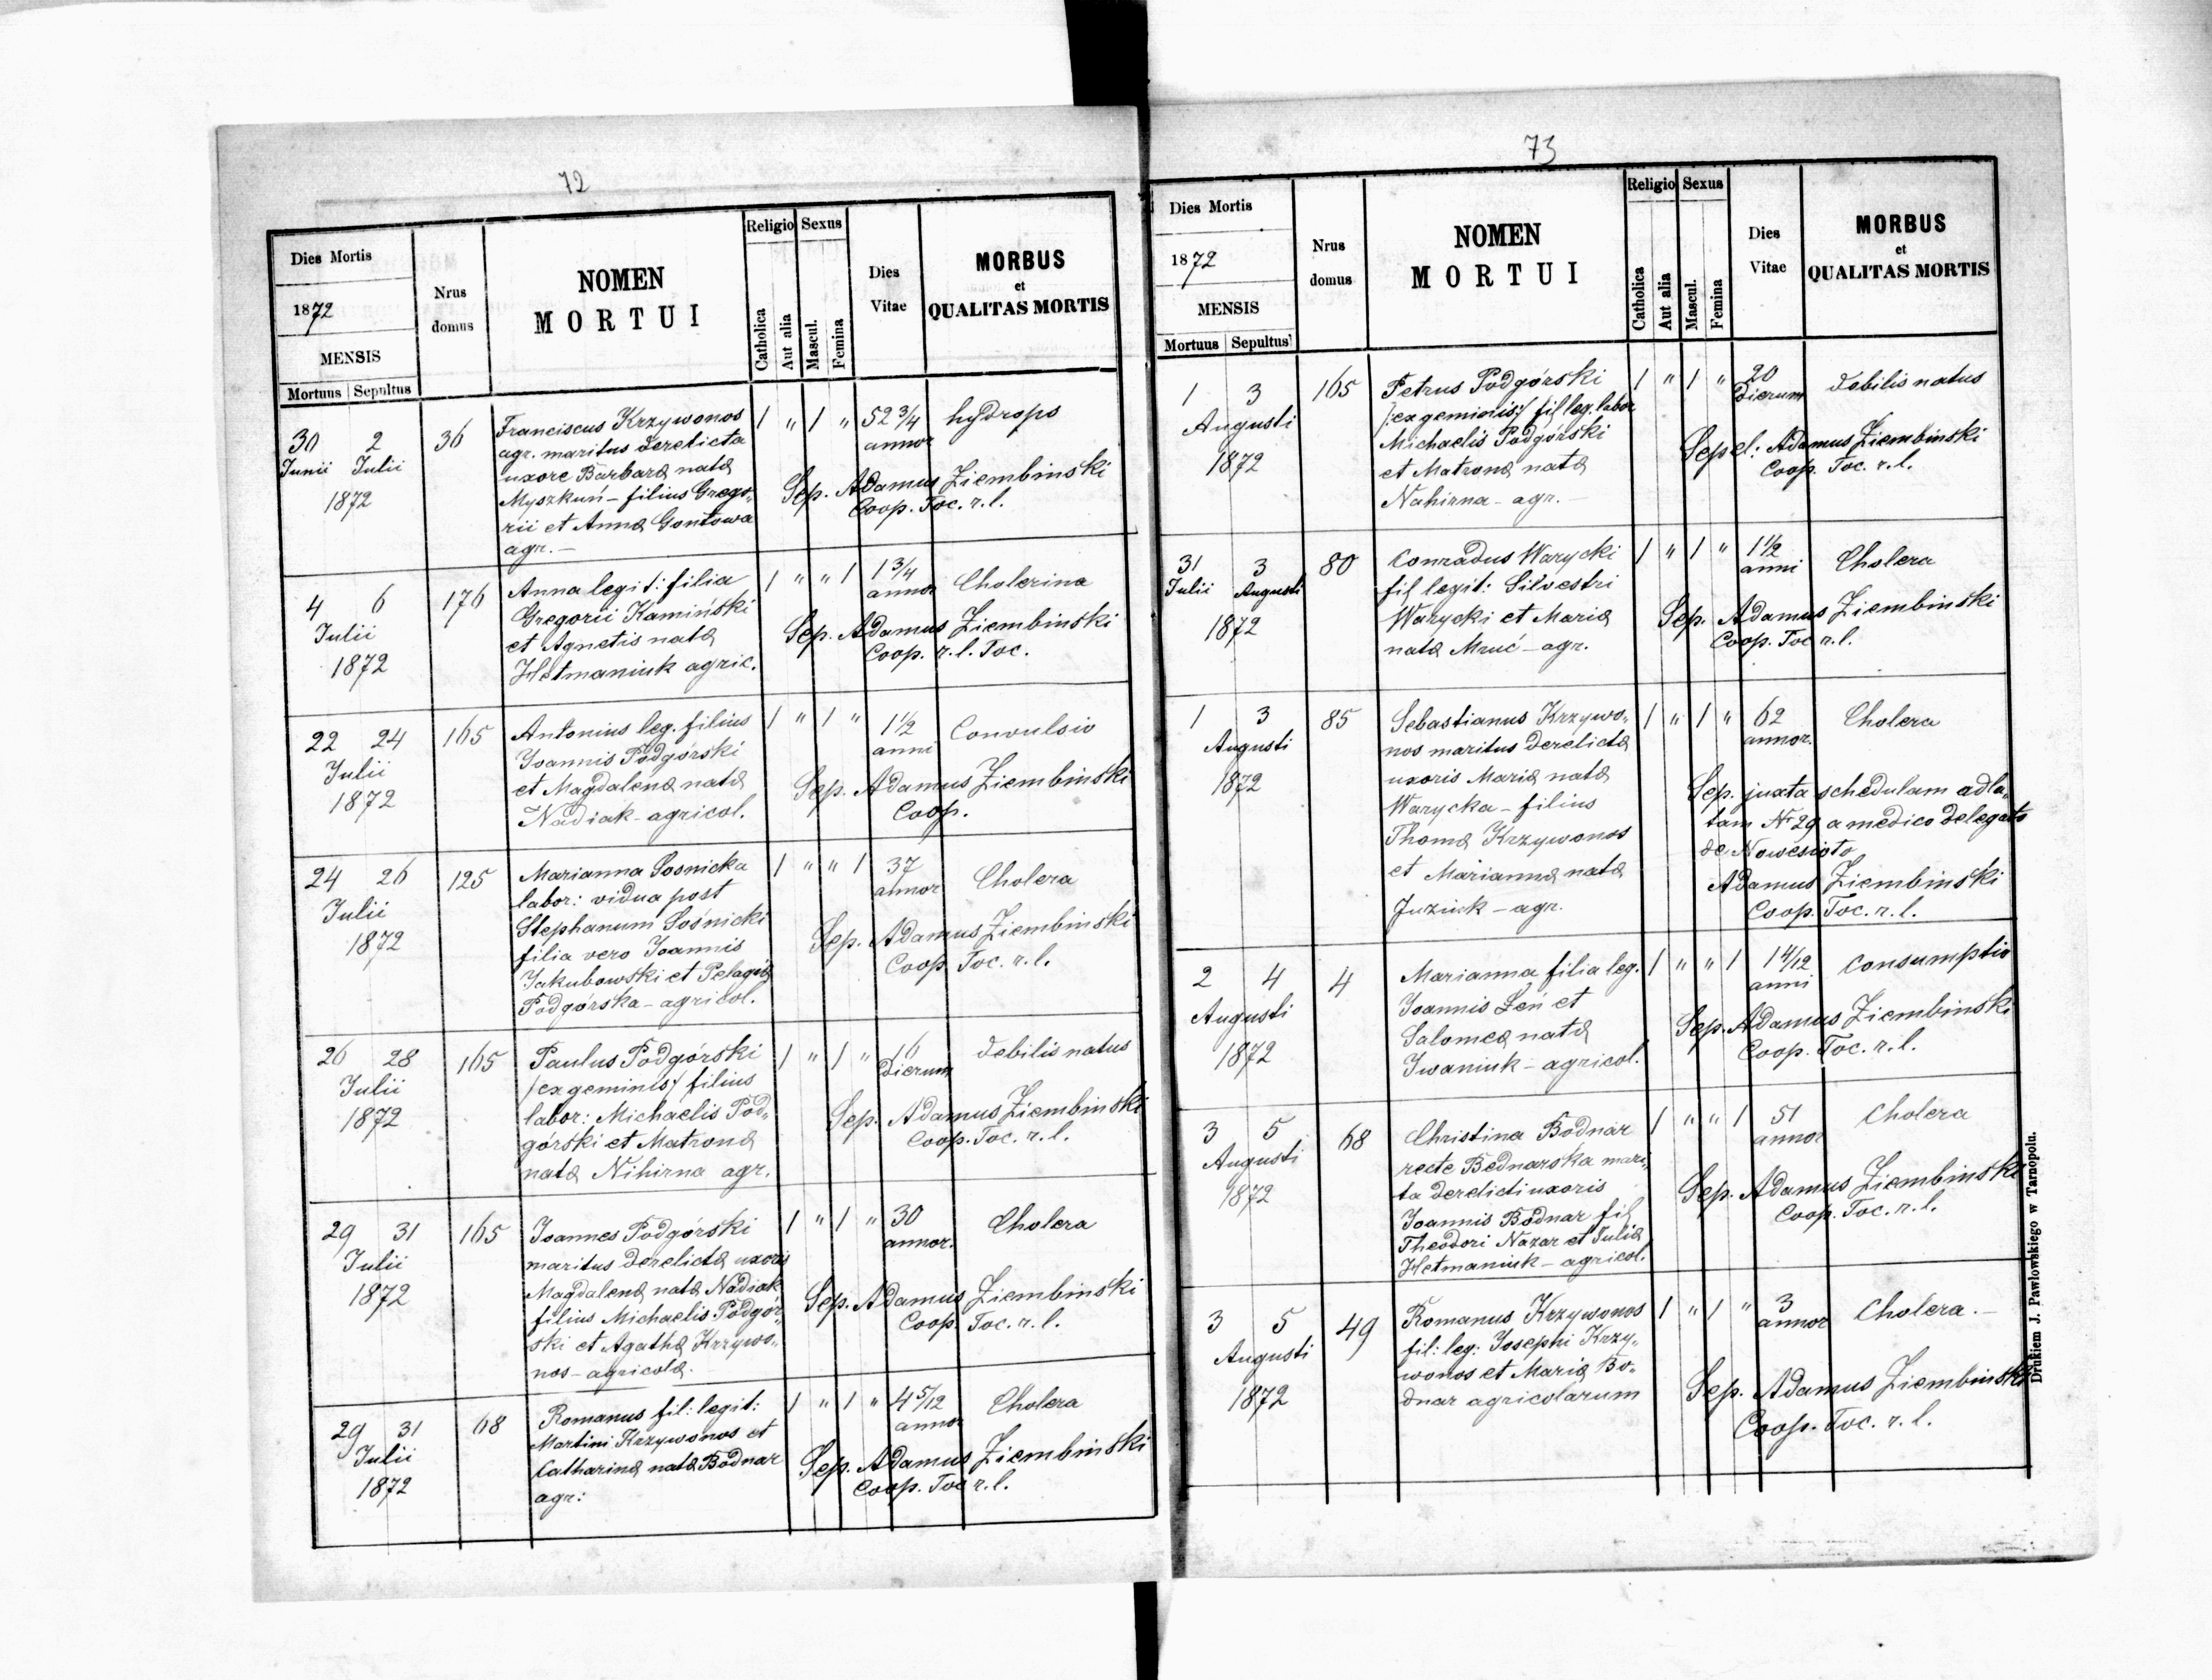 72
Dies Mortis
1872
MENSIS
Mortuus Sepultus
Nrus domus
NOMEN
MORTUI
Religio Sexus
Catholica
Aut alia
Mascul.
Femina
Dies
Vitae
MORBUS
et
QUALITAS MORTIS
30 2 36 Franciscus Krzywonos 1 " 1 " 52 3/4 hydrops
Junii Julii agr. maritus derelicta annor
1872 uxore Barbara nata
Myszkuń – filius Grego„ Sep. Adamus Ziembinski
rii et Anna Gontowa Coop. Toc. r. l.
agr. –
4 6 176 Anna legit: filia 1 " " 1 1 3/4 Cholerina
Julii Gregorii Kamiński annor
1872 et Agnetis nata Sep. Adamus Ziembinski
Hetmaniuk agric. Coop. r. l. Toc.
22 24 165 Antonius leg. filius 1 " 1 " 1 1/2 Convulsio
Julii Joannis Podgórski anni
1872 et Magdalena nata Sep. Adamus Ziembinski
Nadiak – agricol. Coop.
24 26 125 Marianna Sosnicka 1 " " 1 37 Cholera
Julii labor: vidua post annor
1872 Stephanum Sośnicki
filia vero Joannis Sep. Adamus Ziembinski
Jakubowski et Pelagia Coop. Toc. r. l.
Podgórska – agricol.
26 28 165 Paulus Podgórski 1 " 1 " 16 debilis natus
Julii /ex geminis/ filius dierum
1872 labor: Michaelis Pod„
górski et Matrona Sep. Adamus Ziembinski
nata Nihirna agr. Coop. Toc. r. l.
29 31 165 Joannes Podgórski 1 " 1 " 30 Cholera
Julii maritus derelicta uxoris annor.
1872 Magdalena nata Nadiak
filius Michaelis Podgór„ Sep. Adamus Ziembinski
ski et Agatha Krzywo„ Coop. Toc. r. l.
nos – agricola.
29 31 68 Romanus fil: legit: 1 " 1 " 4 5/12 Cholera
Julii Martini Krzywonos et annor
1872 Catharina nata Bodnar Sep. Adamus Ziembinski
agr: Coop. Toc r. l.
73
Dies Mortis
1872
MENSIS
Mortuus Sepultus
Nrus domus
NOMEN
MORTUI
Religio Sexus
Catholica
Aut alia
Mascul.
Femina
Dies
Vitae
MORBUS
et
QUALITAS MORTIS
1 3 165 Petrus Podgórski 1 " 1 " 20 debilis natus
Augusti /:ex geminis:/ fil leg. labor dierum
1872 Michaelis Podgórski
et Matrona nata Sepel: Adamus Ziembinski
Nahirna – agr. – Coop. Toc. r. l.
31 3 80 Conradus Warycki 1 " 1 " 1 1/2 Cholera
Julii Augusti fil legit: Silvestri anni
1872 Warycki et Maria Sep. Adamus Ziembinski
nata Mruć – agr. Coop. Toc r. l.
1 3 85 Sebastianus Krzywo„ 1 " 1 " 62 Cholera
Augusti nos maritus derelicta annor.
1872 uxoris Maria nata Sep. juxta schedulam adla„
Warycka – filius tam Nr 29 a medico delegato
Thoma Krzywonos de Nowesioło
et Marianna nata Adamus Ziembinski
Juziuk – agr. Coop. Toc. r. l.
2 4 4 Marianna filia leg. 1 " " 1 1 4/12 Consumptio
Augusti Joannis Łeń et anni
1872 Salomea nata Sep. Adamus Ziembinski
Iwaniuk – agricol. Coop. Toc. r. l.
3 5 68 Christina Bodnar 1 " " 1 51 Cholera
Augusti recte Bednarska mari„ annor
1872 ta derelicti uxoris Sep. Adamus Ziembinski
Joannis Bodnar fil Coop. Toc. r. l.
Theodori Nazar et Julia
Hetmaniuk – agricol.
3 5 49 Romanus Krzywonos 1 " 1 " 3 Cholera. –
Augusti fil: leg: Josephi Krzy„ annor
1872 wonos et Maria Bo„ Sep. Adamus Ziembinski
dnar agricolarum Coop. Toc. r. l.
Drukiem J. Pawlowskiego w Tarnopolu.